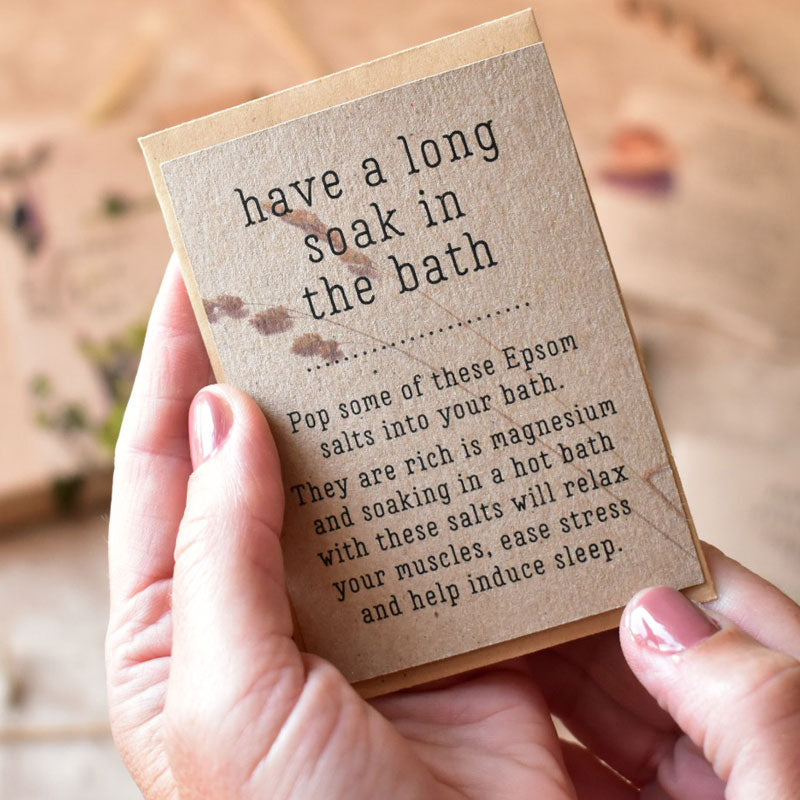 have a long
soak in
the bath
Pop some of these Epsom
salts into your bath.
They are rich is magnesium
and soaking in a hot bath
with these salts will relax
your muscles, ease stress
and help induce sleep.